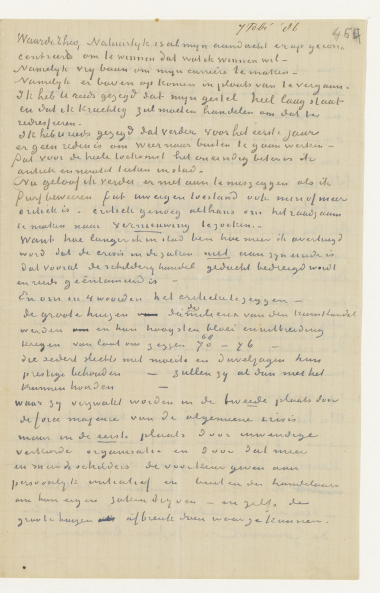 7 Febr '86
454
Waarde Theo, Natuurlyk is al myn aandacht er op gecon-
centreerd om te winnen dat wat ik winnen wil –
Namelyk vry baan om myn carrière te maken –
Namelyk er boven op komen in plaats van te vergaan.
Ik heb U reeds gezegd dat myn gestel heel laag staat
en dat ik krachtig zal moeten handelen om dat te
redresseren –
Ik heb U reeds gezegd dat verder voor het eerste jaar
er geen reden is om weer naar buiten te gaan werken –
Dat voor de heele toekomst het oneindig beter is de
antiek en model teeken in stad –
Nu geloof ik verder er met aan te mogen zeggen als ik
durf beweren dat uw eigen toestand ook min of meer
kritiek is – kritiek genoeg althans om het raadzaam
te maken naar vernieuwing te zoeken –
Want hoe langer ik in stad ben hoe meer ik overtuigd
word dat de crisis in de zaken niet aan zyn einde is
dat vooral de schildery handel geducht bedreigd wordt
en reeds geëntameerd is –
En om in 4 woorden het kritieke te zeggen –
de groote huizen die de millioenen van den kunsthandel
werden en hun hoogsten bloei en uitbreiding
kregen van laat ons zeggen 60 – 76 –
die zederd slechts met moeite en duivelzagen hun
prestige behouden – zullen zy al dan niet het
kunnen houden –
waar zy verzwakt worden in de tweede plaats door
de force majeure van de algemeene crisis
maar in de eerste plaats door inwendige
verkeerde organisatie en door dat meer
en meer de schilders de voorkeur geven aan
persoonlyk initiatief en buiten den handelaar
om hun eigen zaken dryven – en zelfs de
groote huizen afbreuk doen waar ze kunnen.